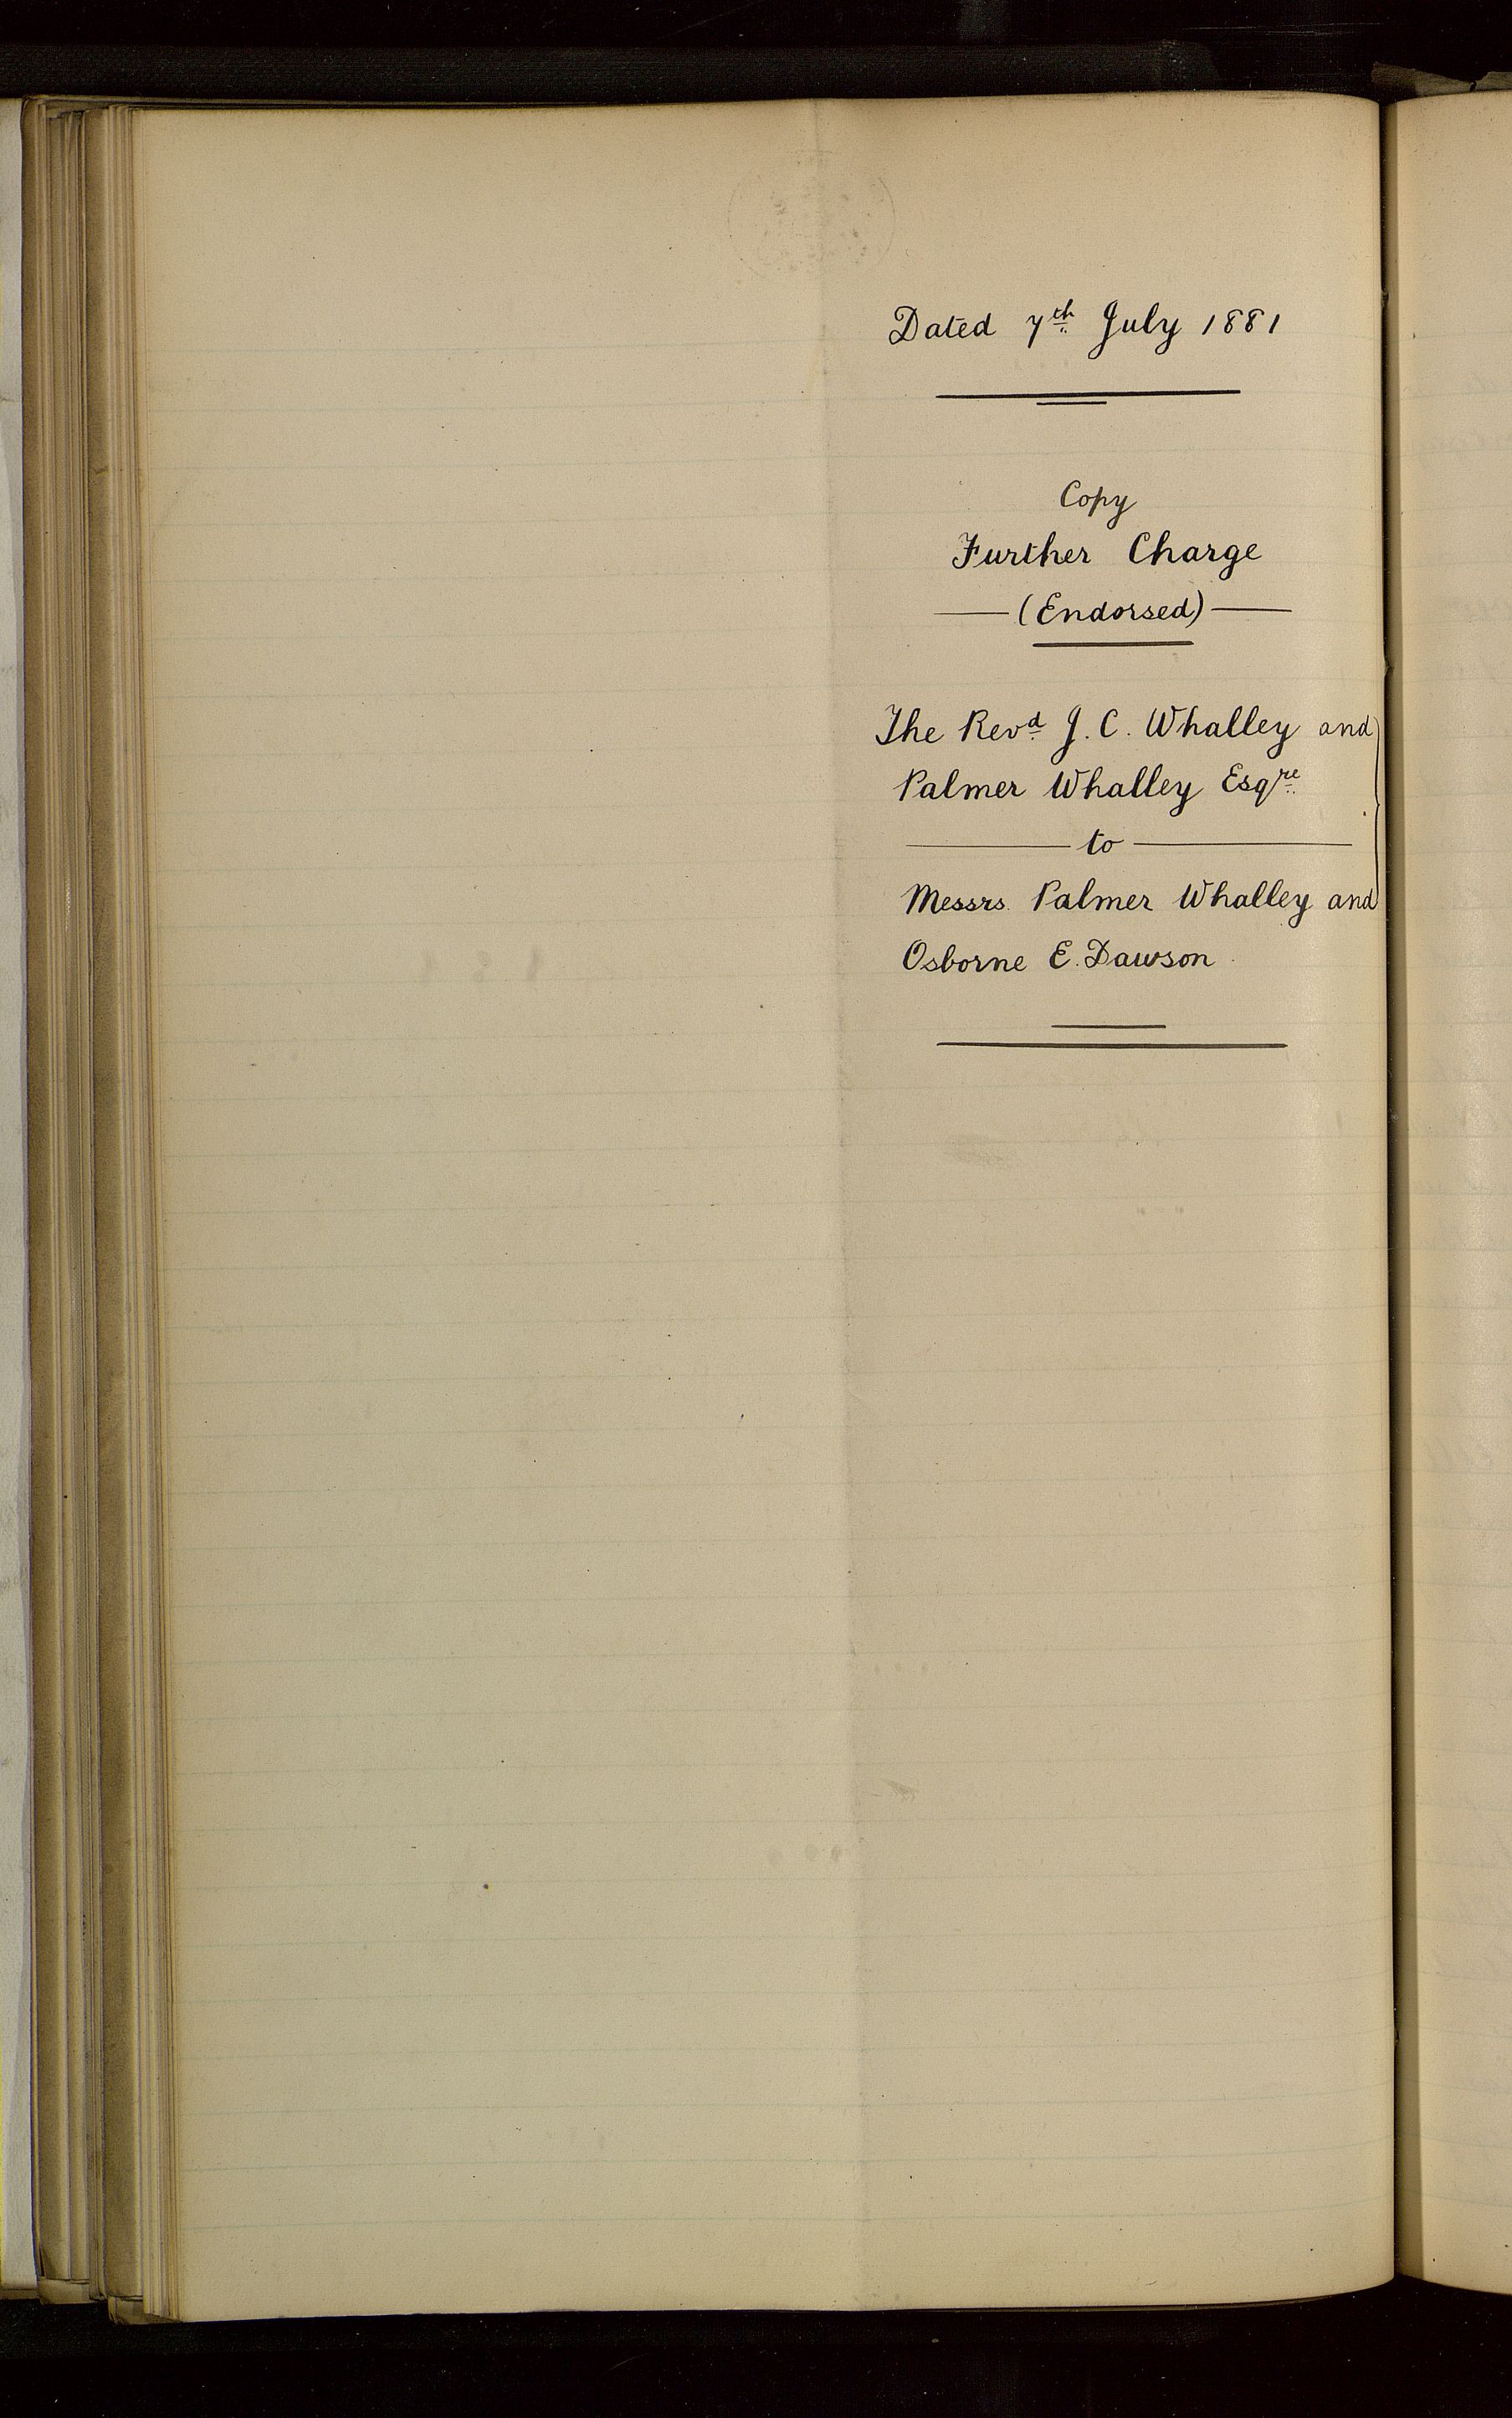 Dated 7th July 1881
Copy
Further Charge
(Endorsed)
The Revd J. C. Whalley and
Palmer Whalley Esqre
to
Messrs Palmer Whalley and
Osborne E. Dawson